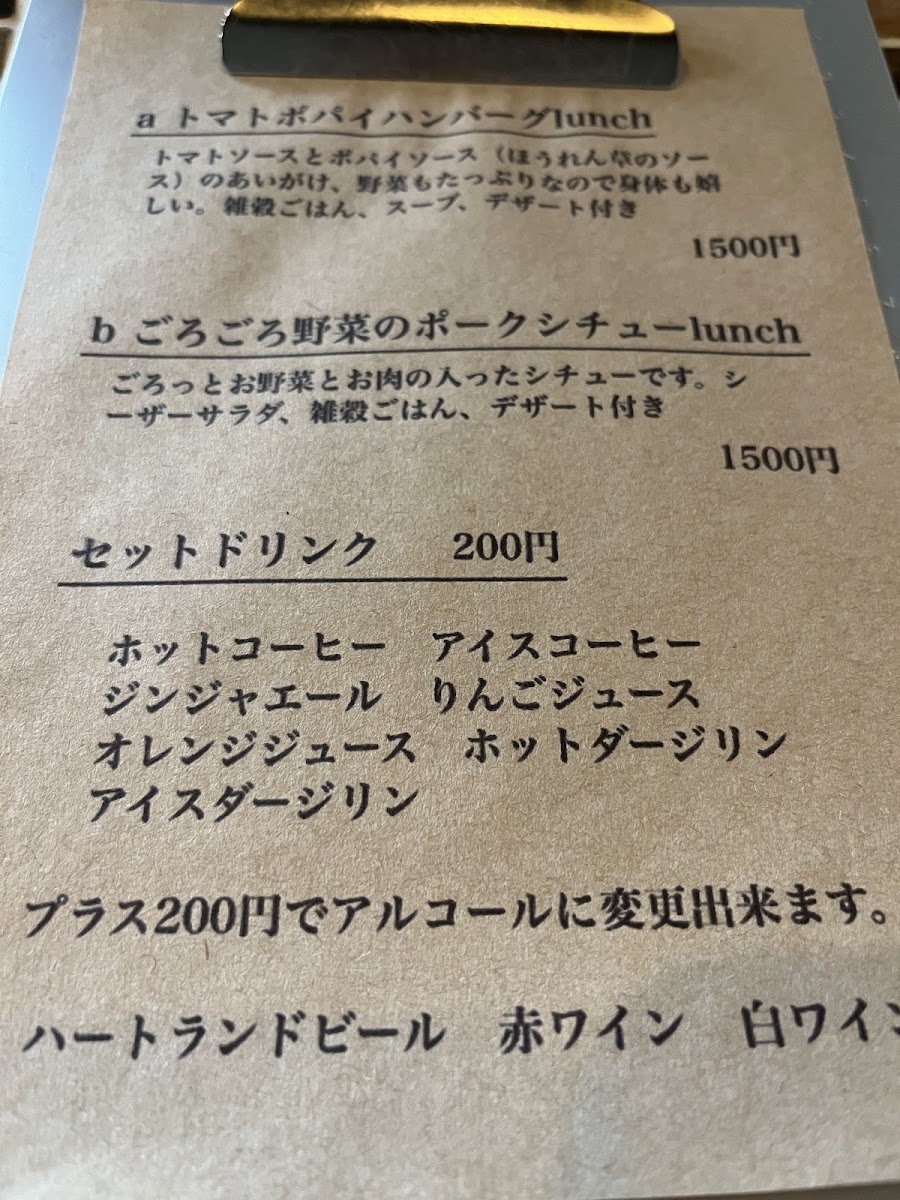 a トマトポパイハンバーグlunch
トマトソースとポパイソース（ほうれん草のソー
ス）のあいがけ、野菜もたっぷりなので身体も嬉
しい。雑穀ごはん、スープ、デザート付き
1500円
b ごろごろ野菜のポークシチューlunch
ごろっとお野菜とお肉の入ったシチューです。シ
ーザーサラダ、雑穀ごはん、デザート付き
1500円
セットドリンク 200円
ホットコーヒー アイスコーヒー
ジンジャエール りんごジュース
オレンジジュース ホットダージリン
アイスダージリン
プラス200円でアルコールに変更出来ます。
ハートランドビール 赤ワイン 白ワイン